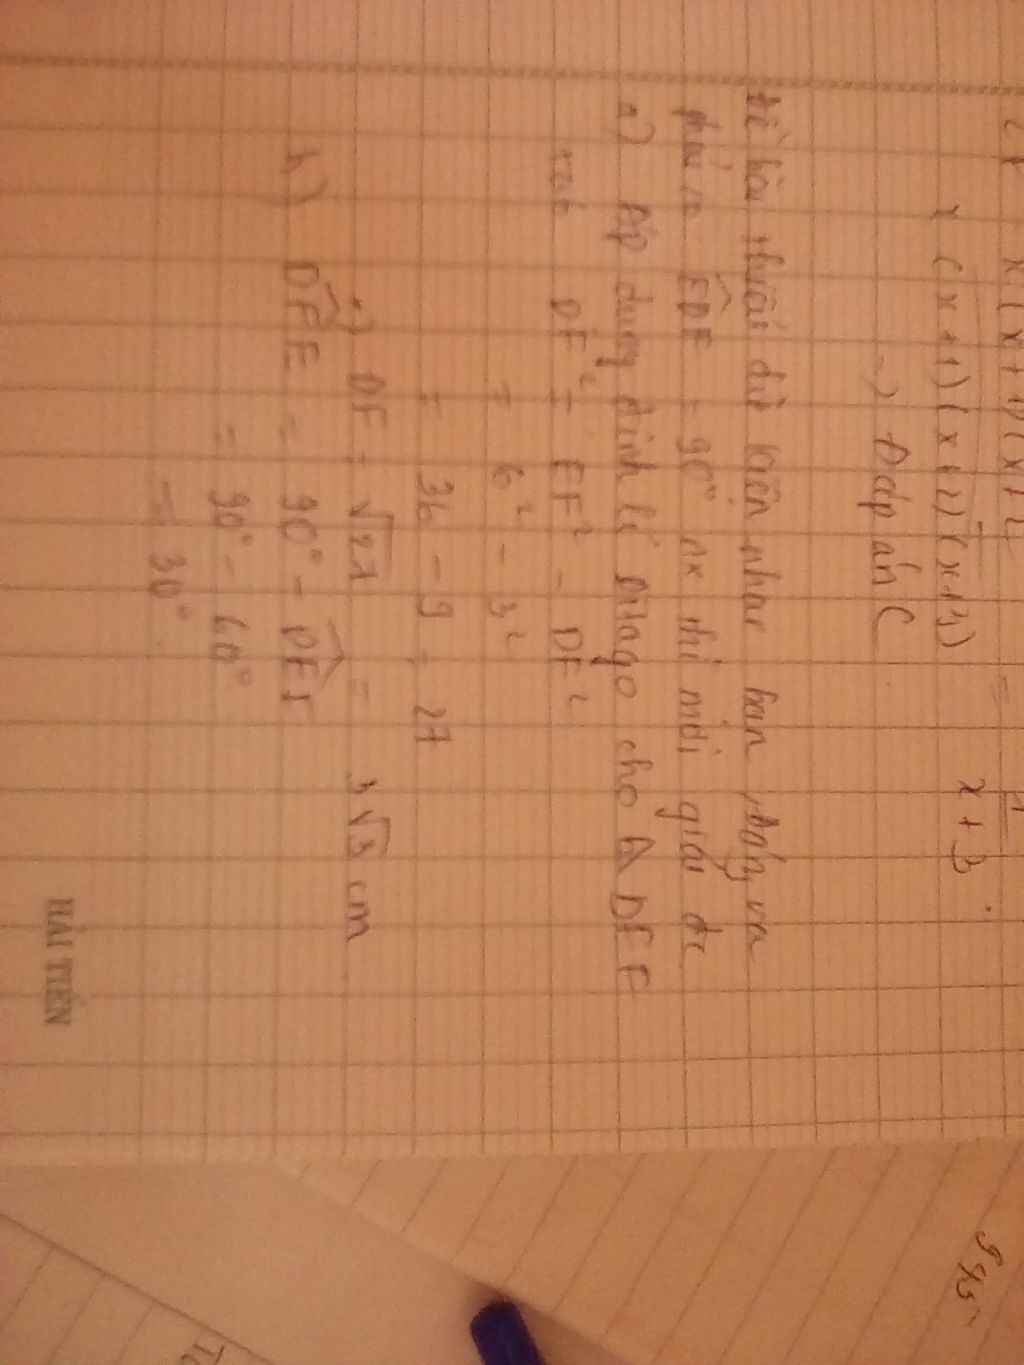 x(x+1)(x+2
x(x+1)(x+2)(x+3) = x+3
→ Đáp án C
Đề bài thiếu dữ kiện nhar bạn, đáng
phải có EDF = 90° nx thì mới giải đc
a) Áp dụng định lí Pitago cho Δ DEF
DF² = EF² - DE²
= 6² - 3²
= 36 - 9 = 27
=) DF = √27 = 3√3 cm
b) DFE = 90° - DEF
= 90° - 60°
= 30°
HẢI TIẾN